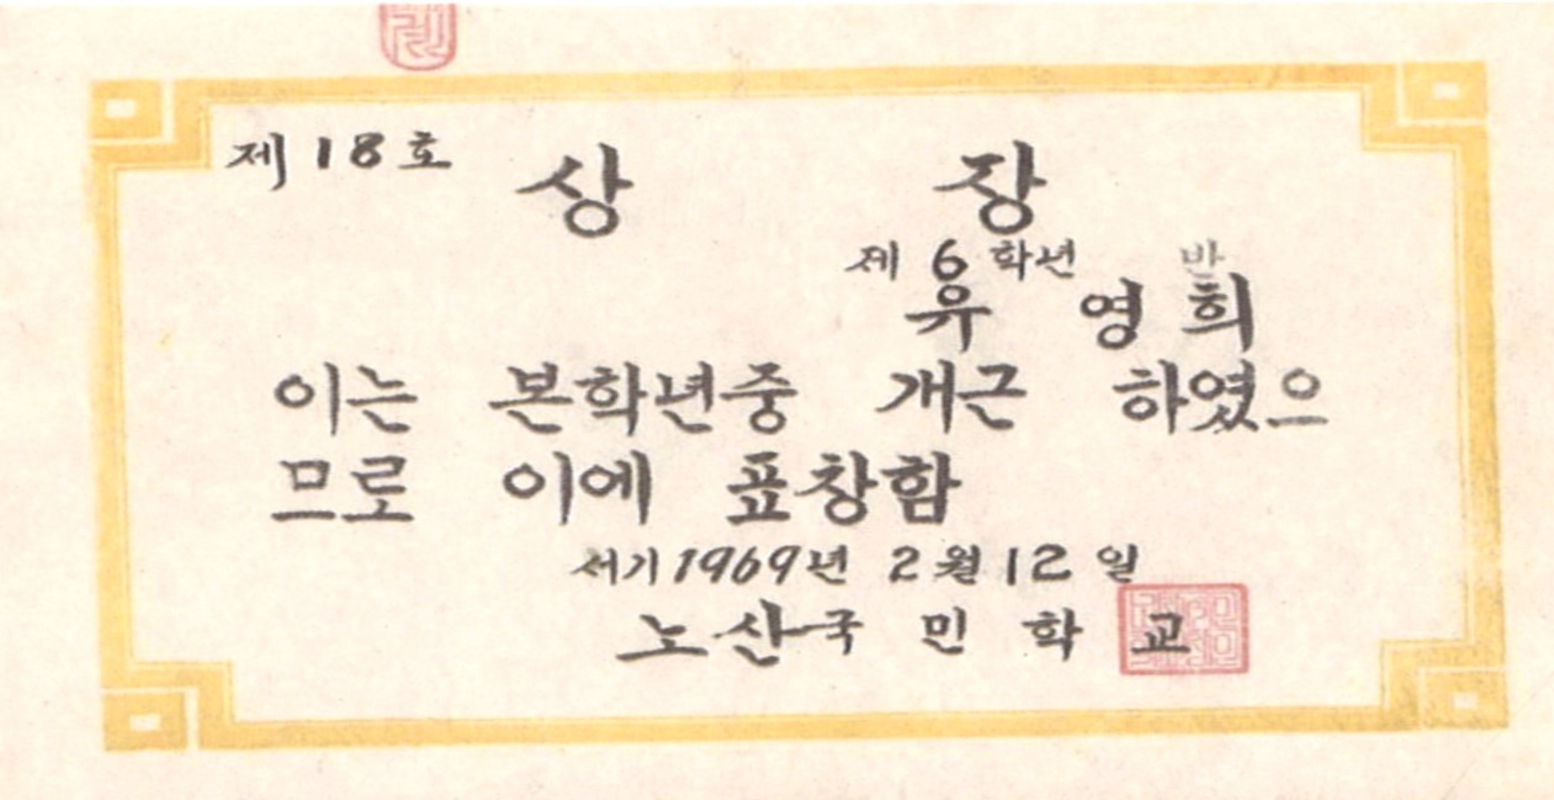 제 18 호
상 장
제 6 학년 반
유 영 희
이는 본학년중 개근 하였으
므로 이에 표창함
서기 1969년 2월 12일
노산국민학교